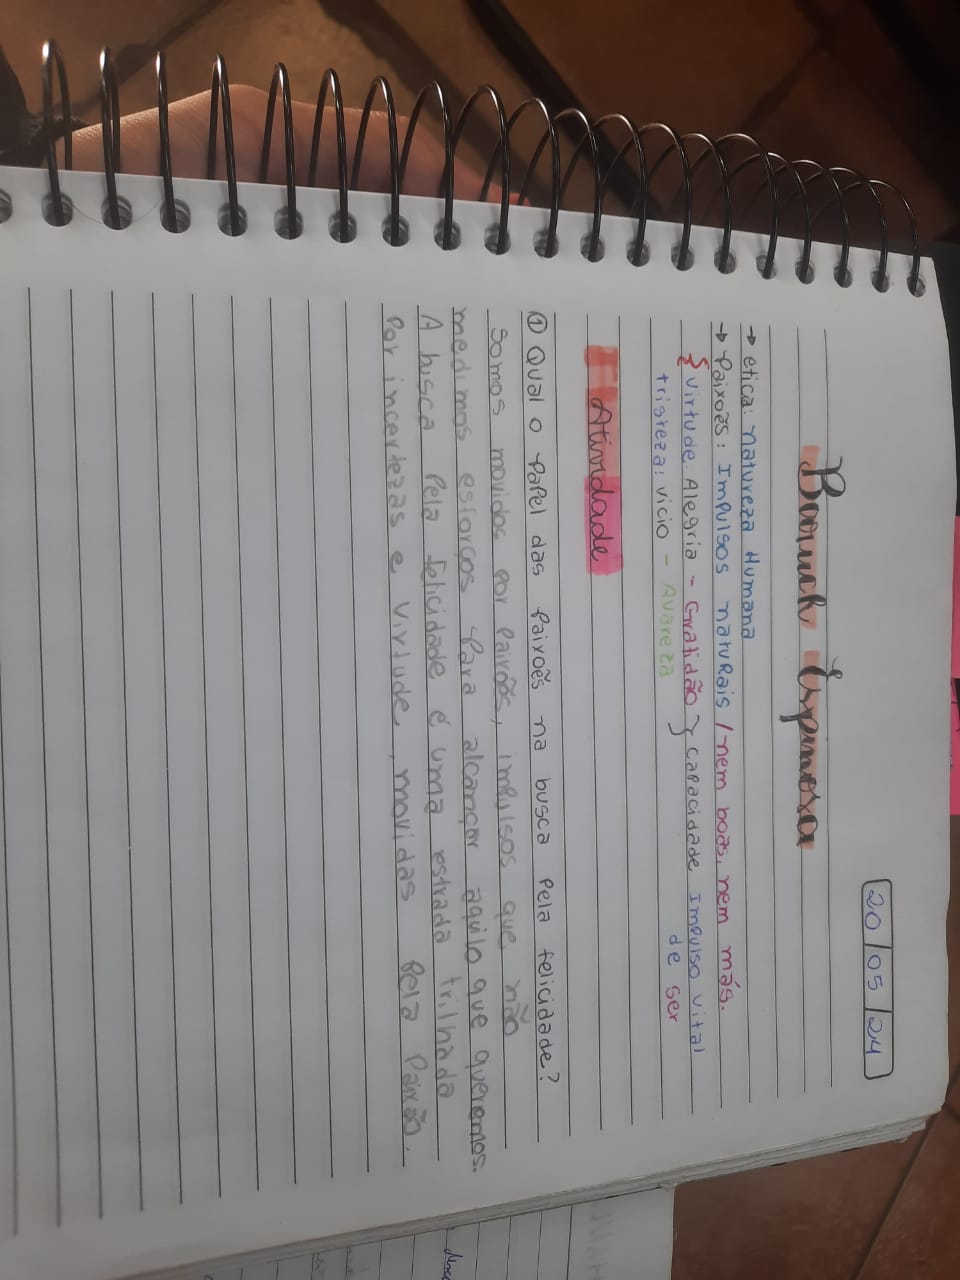 20/05/24
Baruch Espinosa
→ etica: natureza Humana
→ Paixões: Impulsos naturais / nem boas, nem más.
{ virtude: Alegria - Gratidão } capacidade Impulso vital
tristeza: vicio - Avareza
de ser
Atividade
① Qual o papel das paixões na busca pela felicidade?
Somos movidos por paixões, impulsos que não
medimos esforços para alcançar aquilo que queremos.
A busca pela felicidade é uma estrada trilhada
Por incertezas e virtude, movidas pela Paixão.